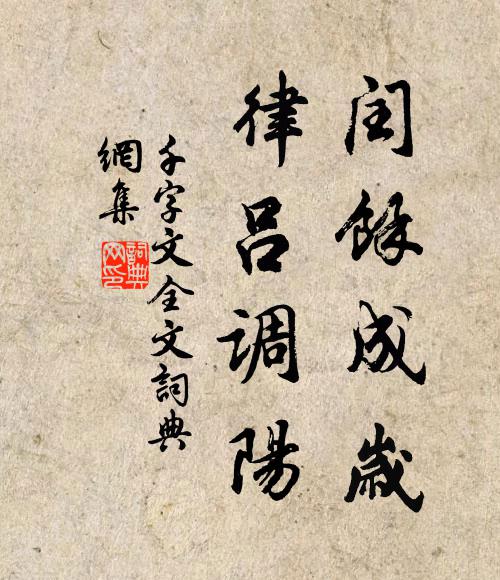 閏餘成歲
律呂調陽
千字文全文詞典
網集
詞典
网印